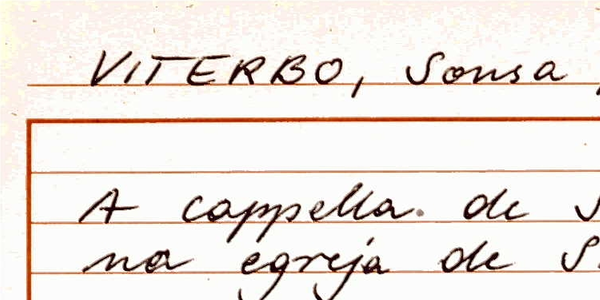 VITERBO, Sousa
A cappella de
na egreja de